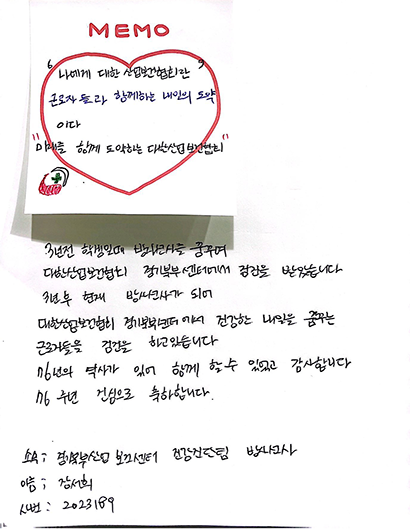 MEMO
"나에게 대한산업보건협회란
근로자들과 함께하는 내일의 도약
이다
"미래를 함께 도약하는 대한산업보건협회"
3년전 학생일때 방사선사를 꿈꾸며
대한산업보건협회 경기북부센터에서 검진을 받았습니다
3년후 현재 방사선사가 되어
대한산업보건협회 경기북부센터에서 건강한 내일을 꿈꾸는
근로자들을 검진을 하고있습니다
76년의 역사가 있어 함께 할 수 있었고 감사합니다
76주년 진심으로 축하합니다.
소속; 경기북부산업보건센터 건강진단팀 방사선사
이름; 강서희
사번: 2023189